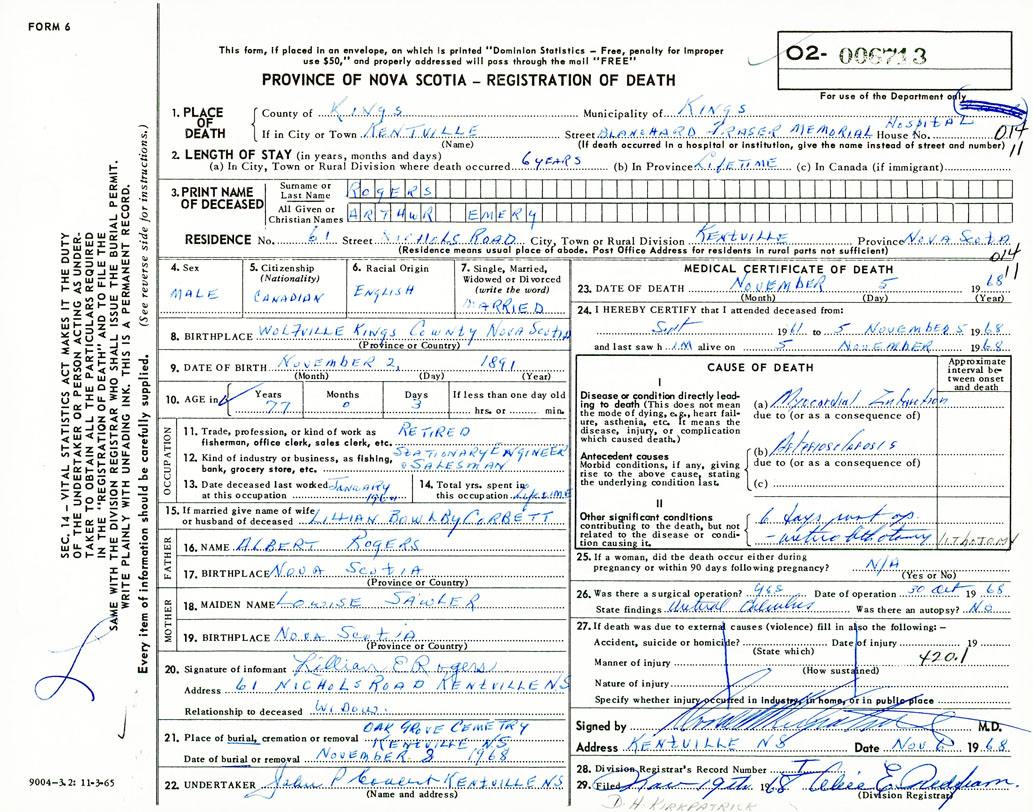 FORM 6
This form, if placed in an envelope, on which is printed "Dominion Statistics – Free, penalty for improper
use $50," and properly addressed will pass through the mail "FREE"
PROVINCE OF NOVA SCOTIA – REGISTRATION OF DEATH
O2- 006713
For use of the Department only
014
11
1. PLACE OF DEATH
County of KINGS Municipality of KINGS
If in City or Town KENTVILLE Street BLANCHARD FRASER MEMORIAL HOSPITAL House No.
(Name) (If death occurred in a hospital or institution, give the name instead of street and number)
2. LENGTH OF STAY (in years, months and days)
(a) In City, Town or Rural Division where death occurred 6 YEARS (b) In Province LIFETIME (c) In Canada (if immigrant)
3. PRINT NAME OF DECEASED
Surname or Last Name ROGERS
All Given or Christian Names ARTHUR EMERY
RESIDENCE No. 61 Street NICHOLS ROAD City, Town or Rural Division KENTVILLE Province NOVA SCOTIA
(Residence means usual place of abode. Post Office Address for residents in rural parts not sufficient)
014
11
4. Sex MALE
5. Citizenship (Nationality) CANADIAN
6. Racial Origin ENGLISH
7. Single, Married, Widowed or Divorced (write the word) MARRIED
8. BIRTHPLACE WOLFVILLE KINGS COUNTY NOVA SCOTIA
(Province or Country)
9. DATE OF BIRTH NOVEMBER 2, 1891
(Month) (Day) (Year)
10. AGE in Years 77 Months 0 Days 3 If less than one day old hrs. or min.
OCCUPATION
11. Trade, profession, or kind of work as fisherman, office clerk, sales clerk, etc. RETIRED
12. Kind of industry or business, as fishing, bank, grocery store, etc. STATIONARY ENGINEER & SALESMAN
13. Date deceased last worked at this occupation JANUARY
14. Total yrs. spent in this occupation LIFETIME
15. If married give name of wife or husband of deceased LILLIAN BOWLBY CORBETT
FATHER
16. NAME ALBERT ROGERS
17. BIRTHPLACE NOVA SCOTIA
(Province or Country)
MOTHER
18. MAIDEN NAME LOUISE SAWLER
19. BIRTHPLACE NOVA SCOTIA
(Province or Country)
20. Signature of informant Lillian E Rogers
Address 61 NICHOLS ROAD KENTVILLE NS
Relationship to deceased WIDOW.
21. Place of burial, cremation or removal OAK GROVE CEMETRY KENTVILLE NS
Date of burial or removal NOVEMBER 8 1968
22. UNDERTAKER John P KENTVILLE NS
(Name and address)
MEDICAL CERTIFICATE OF DEATH
23. DATE OF DEATH NOVEMBER 5 1968
(Month) (Day) (Year)
24. I HEREBY CERTIFY that I attended deceased from:
Sept 1961 to 5 NOVEMBER 5 1968
and last saw h IM alive on 5 NOVEMBER 1968
CAUSE OF DEATH
Approximate interval between onset and death
I
Disease or condition directly leading to death (This does not mean the mode of dying, e.g., heart failure, asthenia, etc. It means the disease, injury, or complication which caused death.)
(a) Myocardial Infarction
due to (or as a consequence of)
Antecedent causes
Morbid conditions, if any, giving rise to the above cause, stating the underlying condition last.
(b) Arteriosclerosis
due to (or as a consequence of)
(c)
II
Other significant conditions contributing to the death, but not related to the disease or condition causing it.
6 days post op.
LITHOTOMY
25. If a woman, did the death occur either during pregnancy or within 90 days following pregnancy? N/A
(Yes or No)
26. Was there a surgical operation? yes Date of operation 30 Oct 1968
State findings Ureteral Calculus Was there an autopsy? No
27. If death was due to external causes (violence) fill in also the following: –
Accident, suicide or homicide? Date of injury 19
(State which)
Manner of injury 420.1
(How sustained)
Nature of injury
Specify whether injury occurred in industry, in home, or in public place
Signed by M.D.
Address KENTVILLE NS Date NOV 6 1968
28. Division Registrar's Record Number
29. Filed Nov 19th 1968
(Division Registrar)
D. H. KIRKPATRICK
SEC. 14 – VITAL STATISTICS ACT MAKES IT THE DUTY
OF THE UNDERTAKER OR PERSON ACTING AS UNDER-
TAKER TO OBTAIN ALL THE PARTICULARS REQUIRED
IN THE "REGISTRATION OF DEATH" AND TO FILE THE
SAME WITH THE DIVISION REGISTRAR WHO SHALL ISSUE THE BURIAL PERMIT.
WRITE PLAINLY WITH UNFADING INK. THIS IS A PERMANENT RECORD.
Every item of information should be carefully supplied. (See reverse side for instructions.)
9004–3.2: 11-3-65